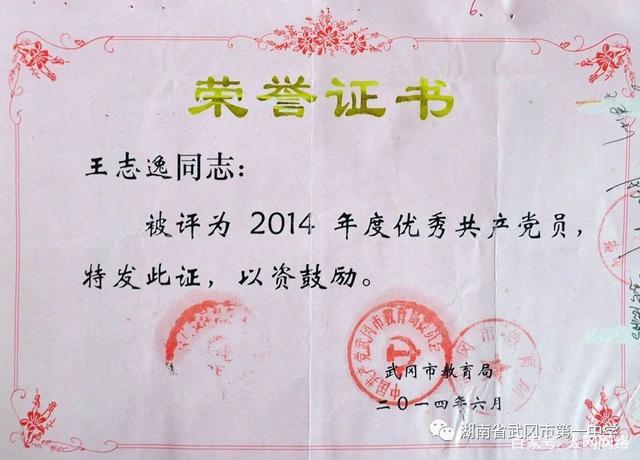 荣誉证书
王志逸同志：
被评为 2014 年度优秀共产党员，
特发此证，以资鼓励。
中国共产党武冈市教育局委员会
武冈市教育局
武冈市教育局
二〇一四年六月
湖南省武冈市第一中学